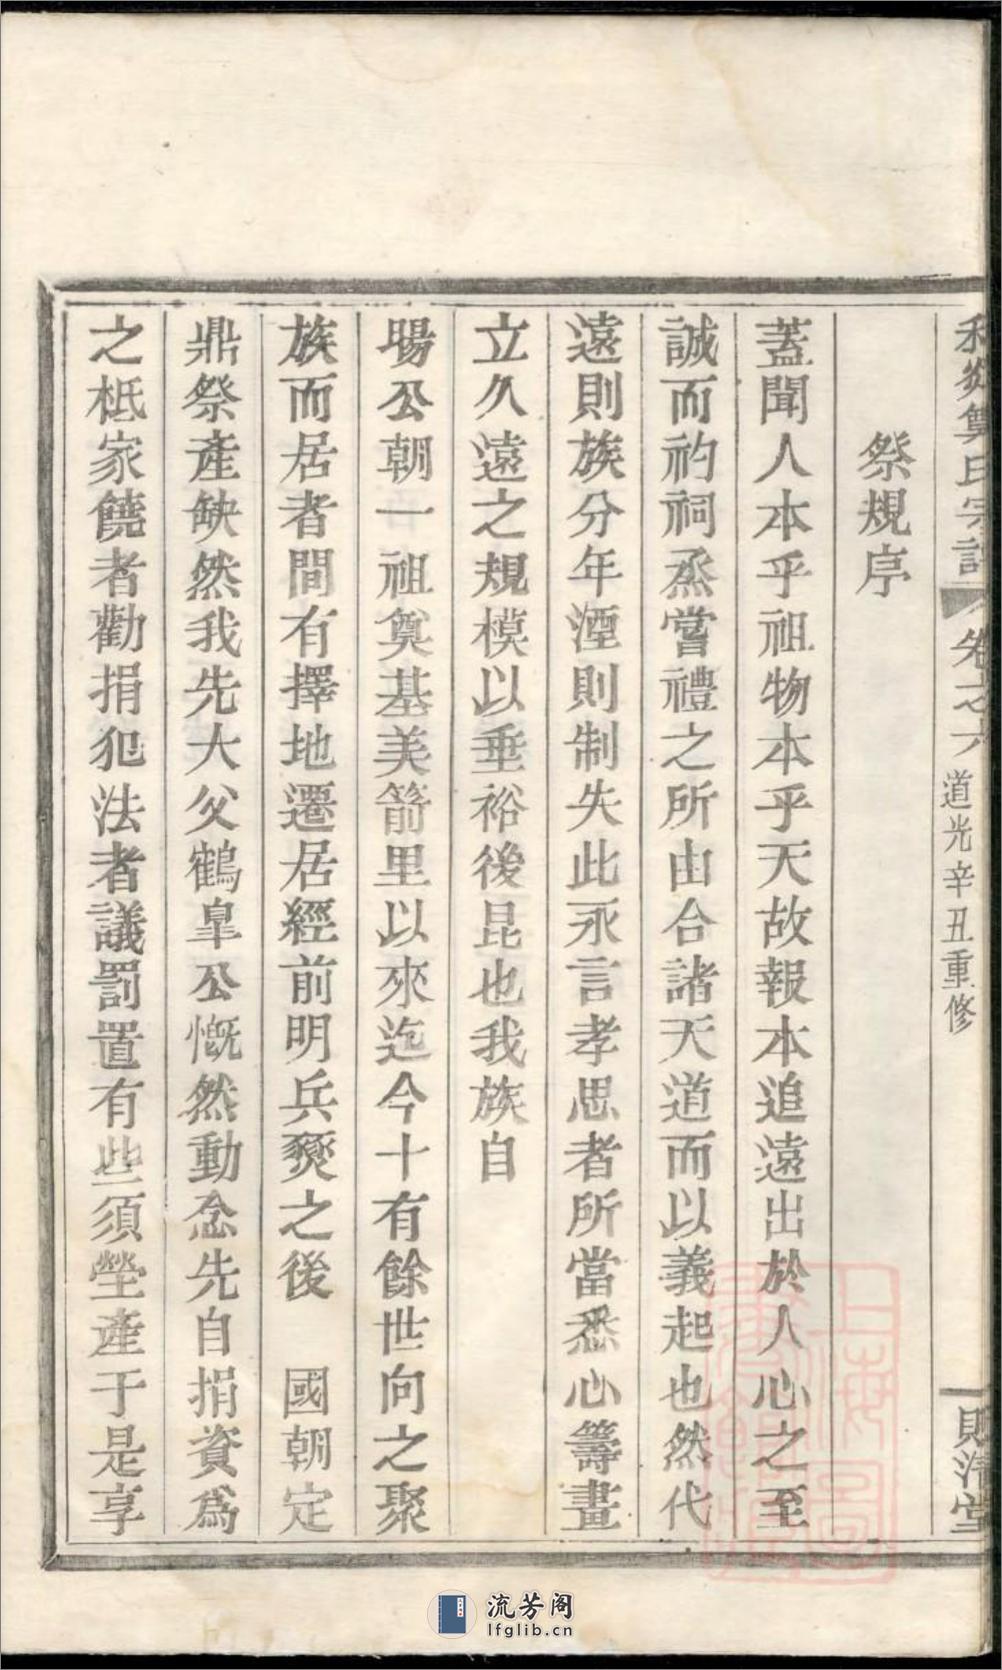 氏宗譜 卷之六 道光辛丑重修
祭規序
蓋聞人本乎祖物本乎天故報本追遠出於人心之至
誠而礿祠烝嘗禮之所由合諸天道而以義起也然代
遠則族分年湮則制失此永言孝思者所當悉心籌畫
立久遠之規模以垂裕後昆也我族自
暘公朝一祖奠基美箭里以來迄今十有餘世向之聚
族而居者間有擇地遷居經前明兵燹之後 國朝定
鼎祭產缺然我先大父鶴臯公慨然動念先自捐資爲
之柢家饒者勸捐犯法者議罰置有些須塋產于是享
上海圖書館藏
流芳阁
lfglib.cn